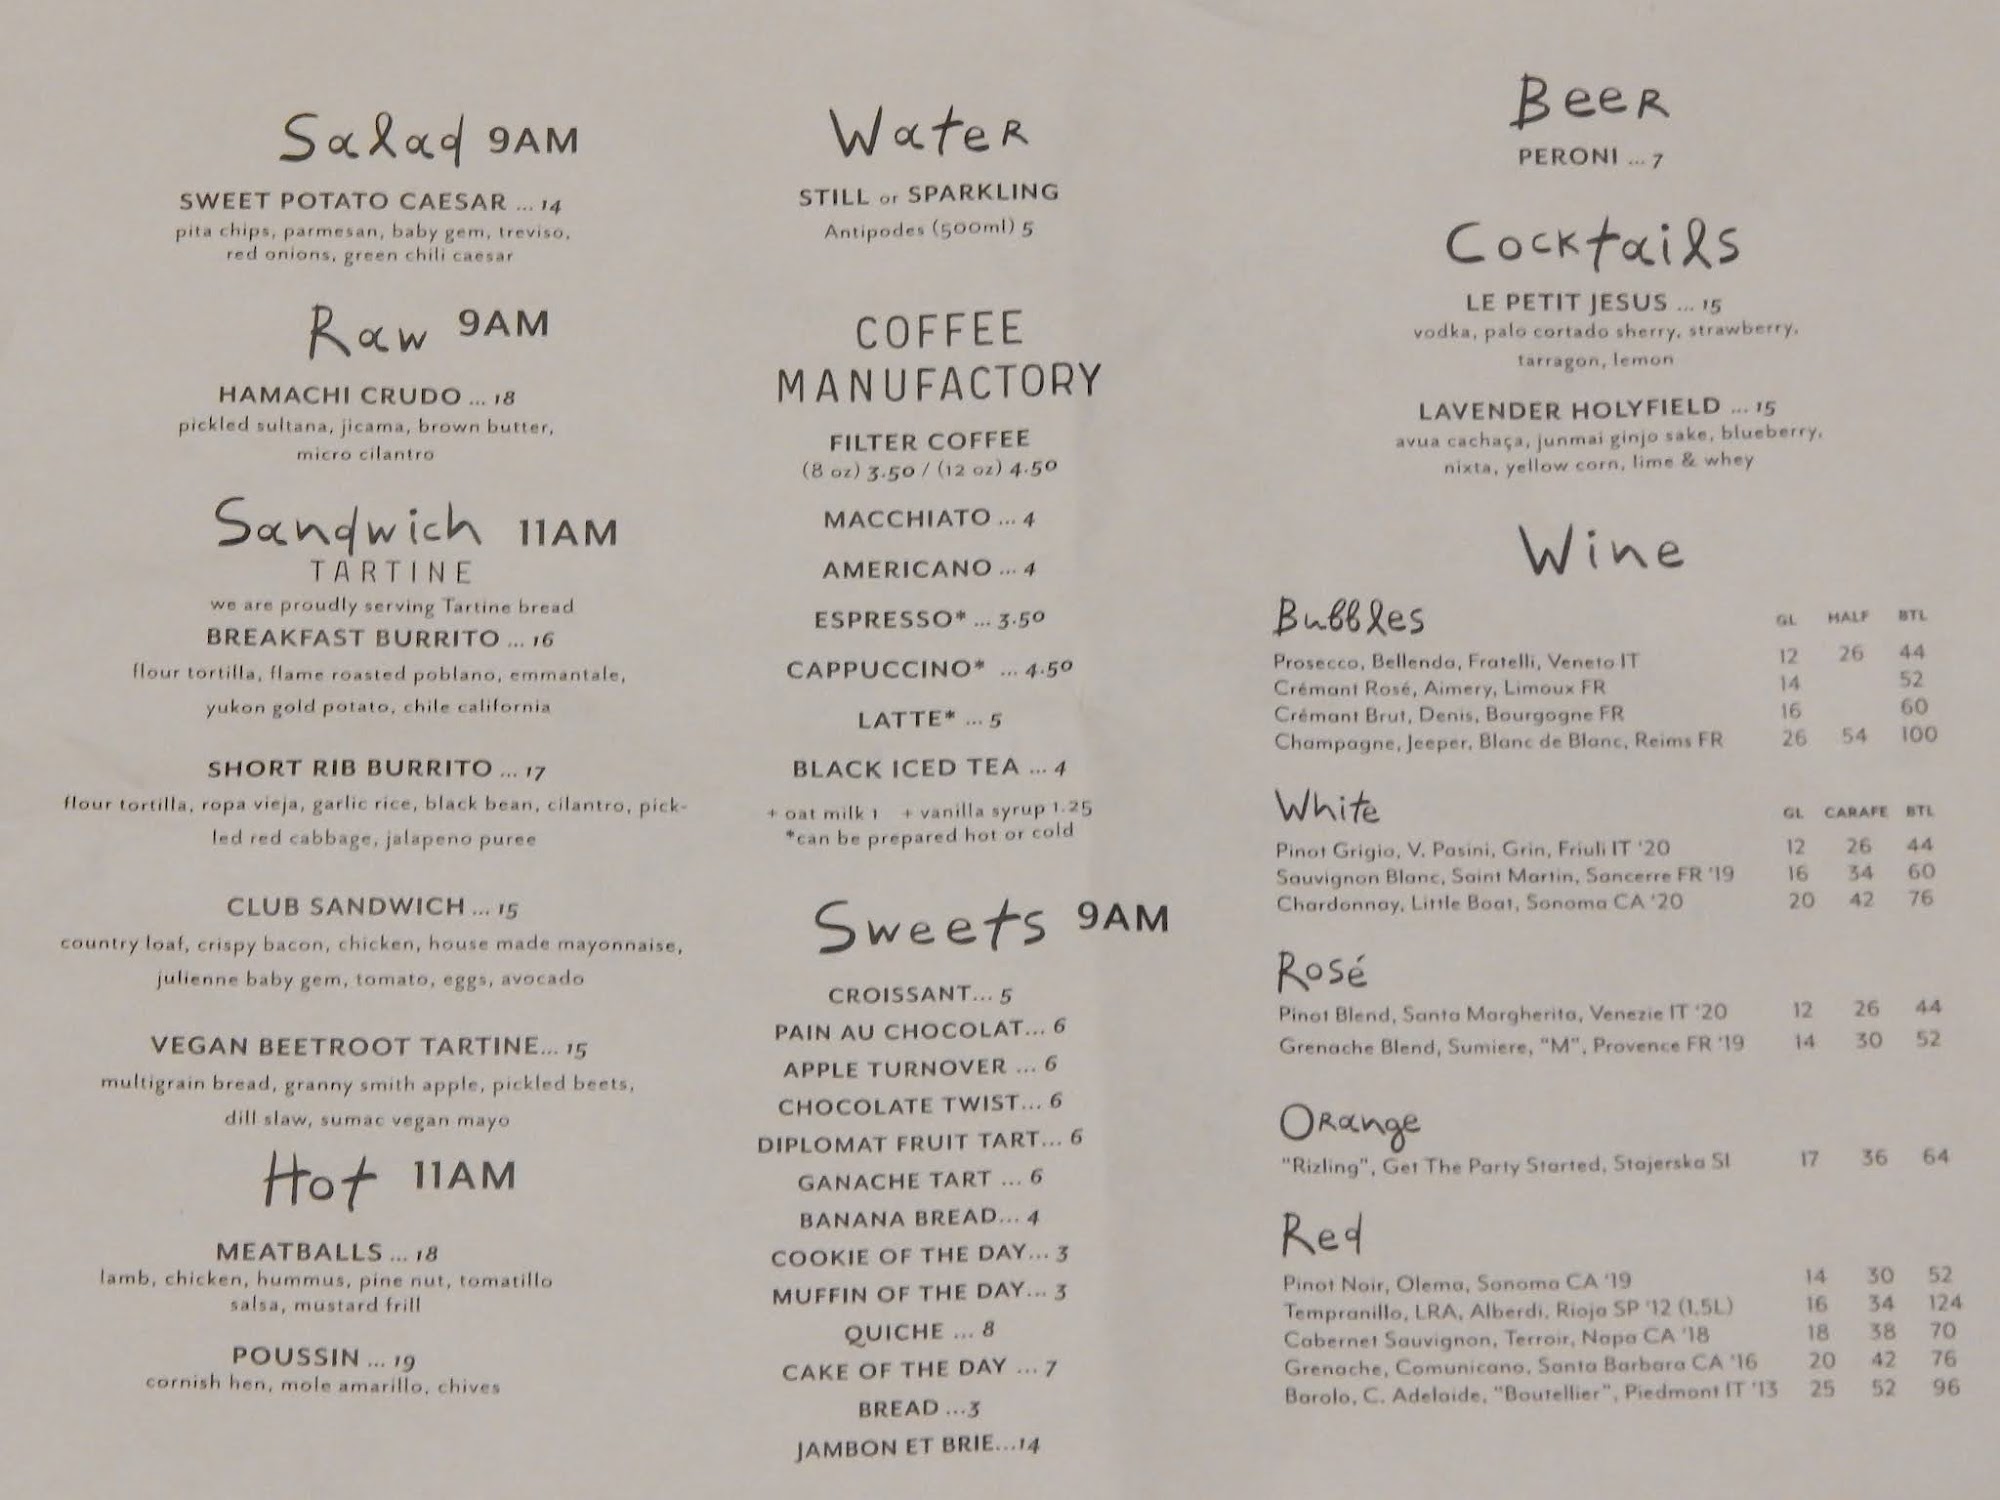 Salad 9AM
SWEET POTATO CAESAR ... 14
pita chips, parmesan, baby gem, treviso,
red onions, green chili caesar
Raw 9AM
HAMACHI CRUDO ... 18
pickled sultana, jicama, brown butter,
micro cilantro
Sandwich 11AM
TARTINE
we are proudly serving Tartine bread
BREAKFAST BURRITO ... 16
flour tortilla, flame roasted poblano, emmantale,
yukon gold potato, chile california
SHORT RIB BURRITO ... 17
flour tortilla, ropa vieja, garlic rice, black bean, cilantro, pick-
led red cabbage, jalapeno puree
CLUB SANDWICH ... 15
country loaf, crispy bacon, chicken, house made mayonnaise,
julienne baby gem, tomato, eggs, avocado
VEGAN BEETROOT TARTINE... 15
multigrain bread, granny smith apple, pickled beets,
dill slaw, sumac vegan mayo
Hot 11AM
MEATBALLS ... 18
lamb, chicken, hummus, pine nut, tomatillo
salsa, mustard frill
POUSSIN ... 19
cornish hen, mole amarillo, chives
Water
STILL or SPARKLING
Antipodes (500ml) 5
COFFEE
MANUFACTORY
FILTER COFFEE
(8 oz) 3.50 / (12 oz) 4.50
MACCHIATO ... 4
AMERICANO ... 4
ESPRESSO* ... 3.50
CAPPUCCINO* ... 4.50
LATTE* ... 5
BLACK ICED TEA ... 4
+ oat milk 1 + vanilla syrup 1.25
*can be prepared hot or cold
Sweets 9AM
CROISSANT... 5
PAIN AU CHOCOLAT... 6
APPLE TURNOVER ... 6
CHOCOLATE TWIST... 6
DIPLOMAT FRUIT TART... 6
GANACHE TART ... 6
BANANA BREAD... 4
COOKIE OF THE DAY... 3
MUFFIN OF THE DAY... 3
QUICHE ... 8
CAKE OF THE DAY ... 7
BREAD ...3
JAMBON ET BRIE...14
Beer
PERONI ... 7
Cocktails
LE PETIT JESUS ... 15
vodka, palo cortado sherry, strawberry,
tarragon, lemon
LAVENDER HOLYFIELD ... 15
avua cachaça, junmai ginjo sake, blueberry,
nixta, yellow corn, lime & whey
Wine
Bubbles GL HALF BTL
Prosecco, Bellenda, Fratelli, Veneto IT 12 26 44
Crémant Rosé, Aimery, Limoux FR 14 52
Crémant Brut, Denis, Bourgogne FR 16 60
Champagne, Jeeper, Blanc de Blanc, Reims FR 26 54 100
White GL CARAFE BTL
Pinot Grigio, V. Pasini, Grin, Friuli IT '20 12 26 44
Sauvignon Blanc, Saint Martin, Sancerre FR '19 16 34 60
Chardonnay, Little Boat, Sonoma CA '20 20 42 76
Rosé
Pinot Blend, Santa Margherita, Venezie IT '20 12 26 44
Grenache Blend, Sumiere, "M", Provence FR '19 14 30 52
Orange
"Rizling", Get The Party Started, Stajerska SI 17 36 64
Red
Pinot Noir, Olema, Sonoma CA '19 14 30 52
Tempranillo, LRA, Alberdi, Rioja SP '12 (1.5L) 16 34 124
Cabernet Sauvignon, Terroir, Napa CA '18 18 38 70
Grenache, Comunicano, Santa Barbara CA '16 20 42 76
Barolo, C. Adelaide, "Boutellier", Piedmont IT '13 25 52 96